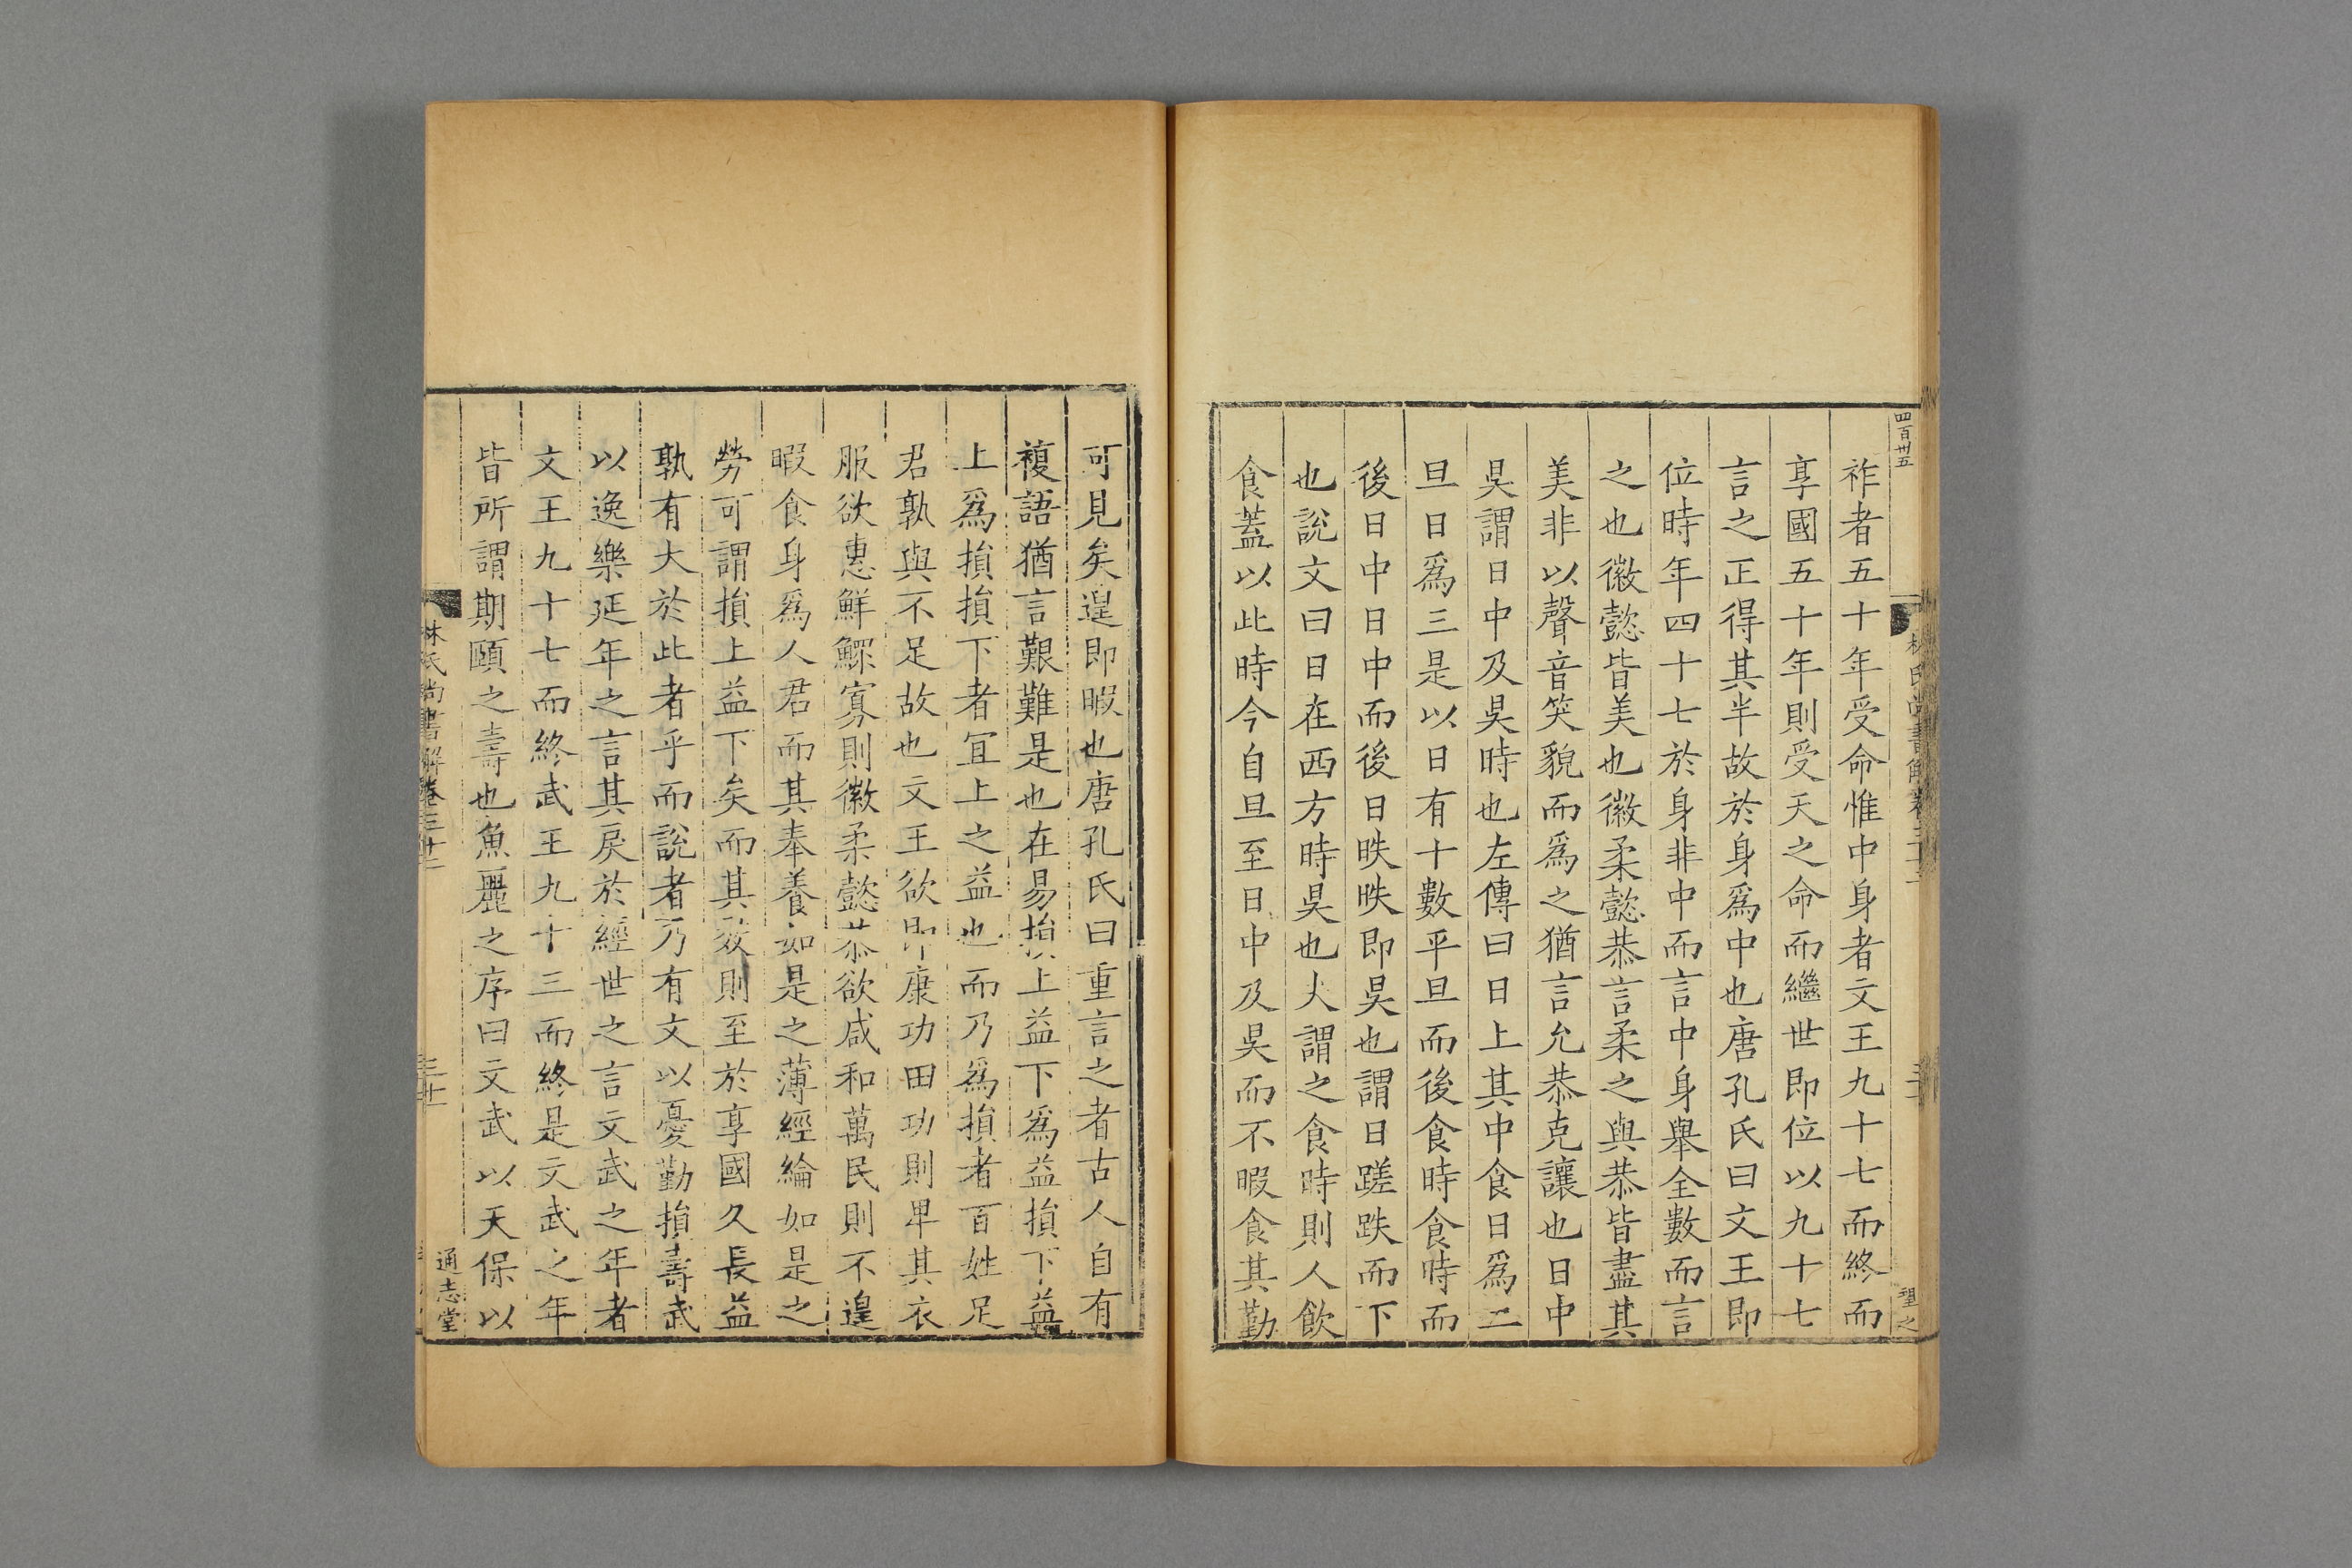 四百卅五
祚者五十年受命惟中身者文王九十七而終而
享國五十年則受天之命而繼世即位以九十七
言之正得其半故於身爲中也唐孔氏曰文王即
位時年四十七於身非中而言中身舉全數而言
之也徽懿皆美也徽柔懿恭言柔之與恭皆盡其
美非以聲音笑貌而爲之猶言允恭克讓也日中
昃謂日中及昃時也左傳曰日上其中食日爲二
旦日爲三是以日有十數平旦而後食時食時而
後日中日中而後日昳昳即昃也謂日蹉跌而下
也說文曰日在西方時昃也大謂之食時則人飲
食蓋以此時今自旦至日中及昃而不暇食其勤
可見矣遑即暇也唐孔氏曰重言之者古人自有
複語猶言艱難是也在易損上益下爲益損下益
上爲損損下者宜上之益也而乃爲損者百姓足
君孰與不足故也文王欲即康功田功則卑其衣
服欲惠鮮鰥寡則徽柔懿恭欲咸和萬民則不遑
暇食身爲人君而其奉養如是之薄經綸如是之
勞可謂損上益下矣而其效則至於享國久長益
孰有大於此者乎而說者乃有文以憂勤損壽武
以逸樂延年之言其戾於經世之言文武之年者
文王九十七而終武王九十三而終是文武之年
皆所謂期頤之壽也魚麗之序曰文武以天保以
林氏尚書解卷三十二
通志堂